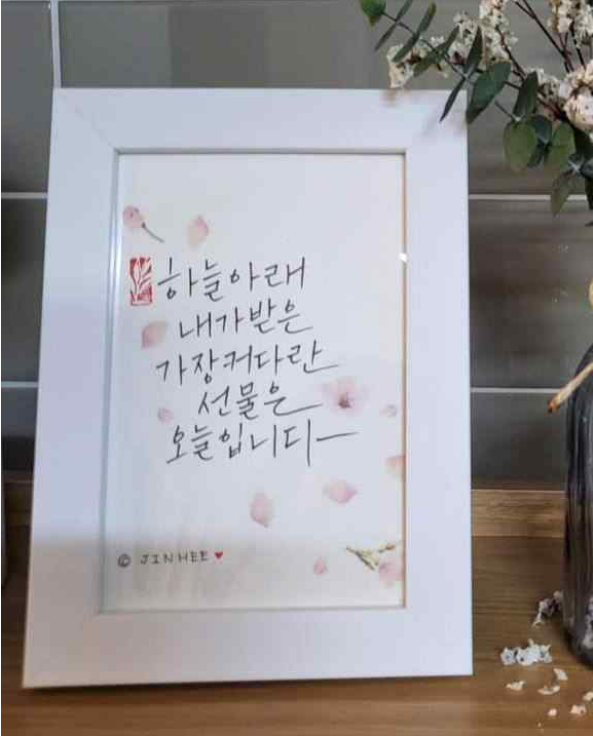 하늘아래
내가받은
가장커다란
선물은
오늘입니다
© JINHEE ♥